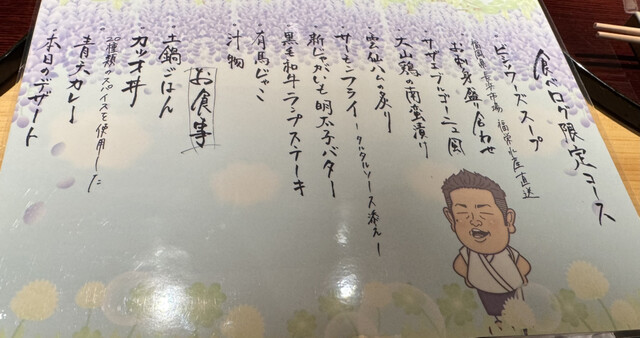 食べログ限定コース
ビシソワーズスープ
お刺身盛り合わせ
福岡県 長浜市場 福栄水産直送
サザエブルゴーニュ風
大山鶏の南蛮漬け
雲仙ハムの炙り
サーモンフライ ータルタルソース添えー
新じゃがいも明太子バター
黒毛和牛ランプステーキ
有馬じゃこ
汁物
お食事
土鍋ごはん
カツオ丼
20種類のスパイスを使用した
青天カレー
本日のデザート